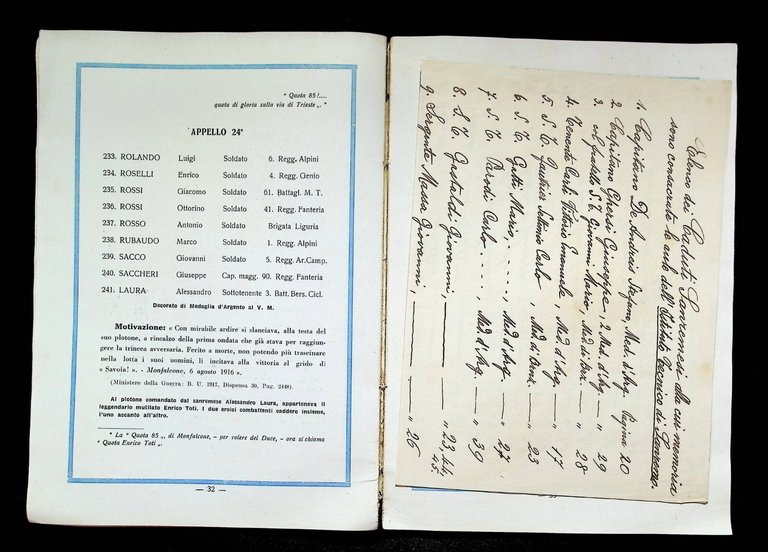 " Quota 85 !....
quota di gloria sulla via di Trieste „. *
APPELLO 24°
233. ROLANDO Luigi Soldato 6. Regg. Alpini
234. ROSELLI Enrico Soldato 4. Regg. Genio
235. ROSSI Giacomo Soldato 61. Battagl. M. T.
236. ROSSI Ottorino Soldato 41. Regg. Fanteria
237. ROSSO Antonio Soldato Brigata Liguria
238. RUBAUDO Marco Soldato 1. Regg. Alpini
239. SACCO Giovanni Soldato 5. Regg. Ar.Camp.
240. SACCHERI Giuseppe Cap. magg. 90. Regg. Fanteria
241. LAURA Alessandro Sottotenente 3. Batt. Bers. Cicl.
Decorato di Medaglia d'Argento al V. M.
Motivazione: « Con mirabile ardire si slanciava, alla testa del
suo plotone, a rincalzo della prima ondata che già stava per raggiun-
gere la trincea avversaria. Ferito a morte, non potendo più trascinare
nella lotta i suoi uomini, li incitava alla vittoria al grido di
« Savoia! ». - Monfalcone, 6 agosto 1916 ».
(Ministero della Guerra: B. U. 1917, Dispensa 30, Pag. 2448).
Al plotone comandato dal sanremese Alessandro Laura, apparteneva il
leggendario mutilato Enrico Toti. I due eroici combattenti caddero insieme,
l'uno accanto all'altro.
* La " Quota 85 „ di Monfalcone, - per volere del Duce, - ora si chiama
" Quota Enrico Toti „.
— 32 —
Elenco dei Caduti Sanremesi alla cui memoria
sono consacrate le aule dell'Istituto Tecnico di Sanremo.
1. Capitano De Andreis Stefano, Med. d'Arg. Pagina 20
2. Capitano Ghersi Giuseppe, 2 Med. d'Arg. — " 29
3. al fratello S. T. Giovanni Mario, Med. di Bro. — " 28
4. Tenente Carli Vittorio Emanuele, Med. d'Arg. — " 17
5. S. T. Settimio Carlo, Med. di Bronz. — " 23
6. S. T. Gatti Mario, . . . . , Med. d'Arg. — " 27
7. S. T. Parodi Carlo . . . . , Med. d'Arg. — " 39
8. S. T. Gastaldi Giovanni, — — " 23, 44, 45.
9. Sergente Massa Giovanni, — — " 26